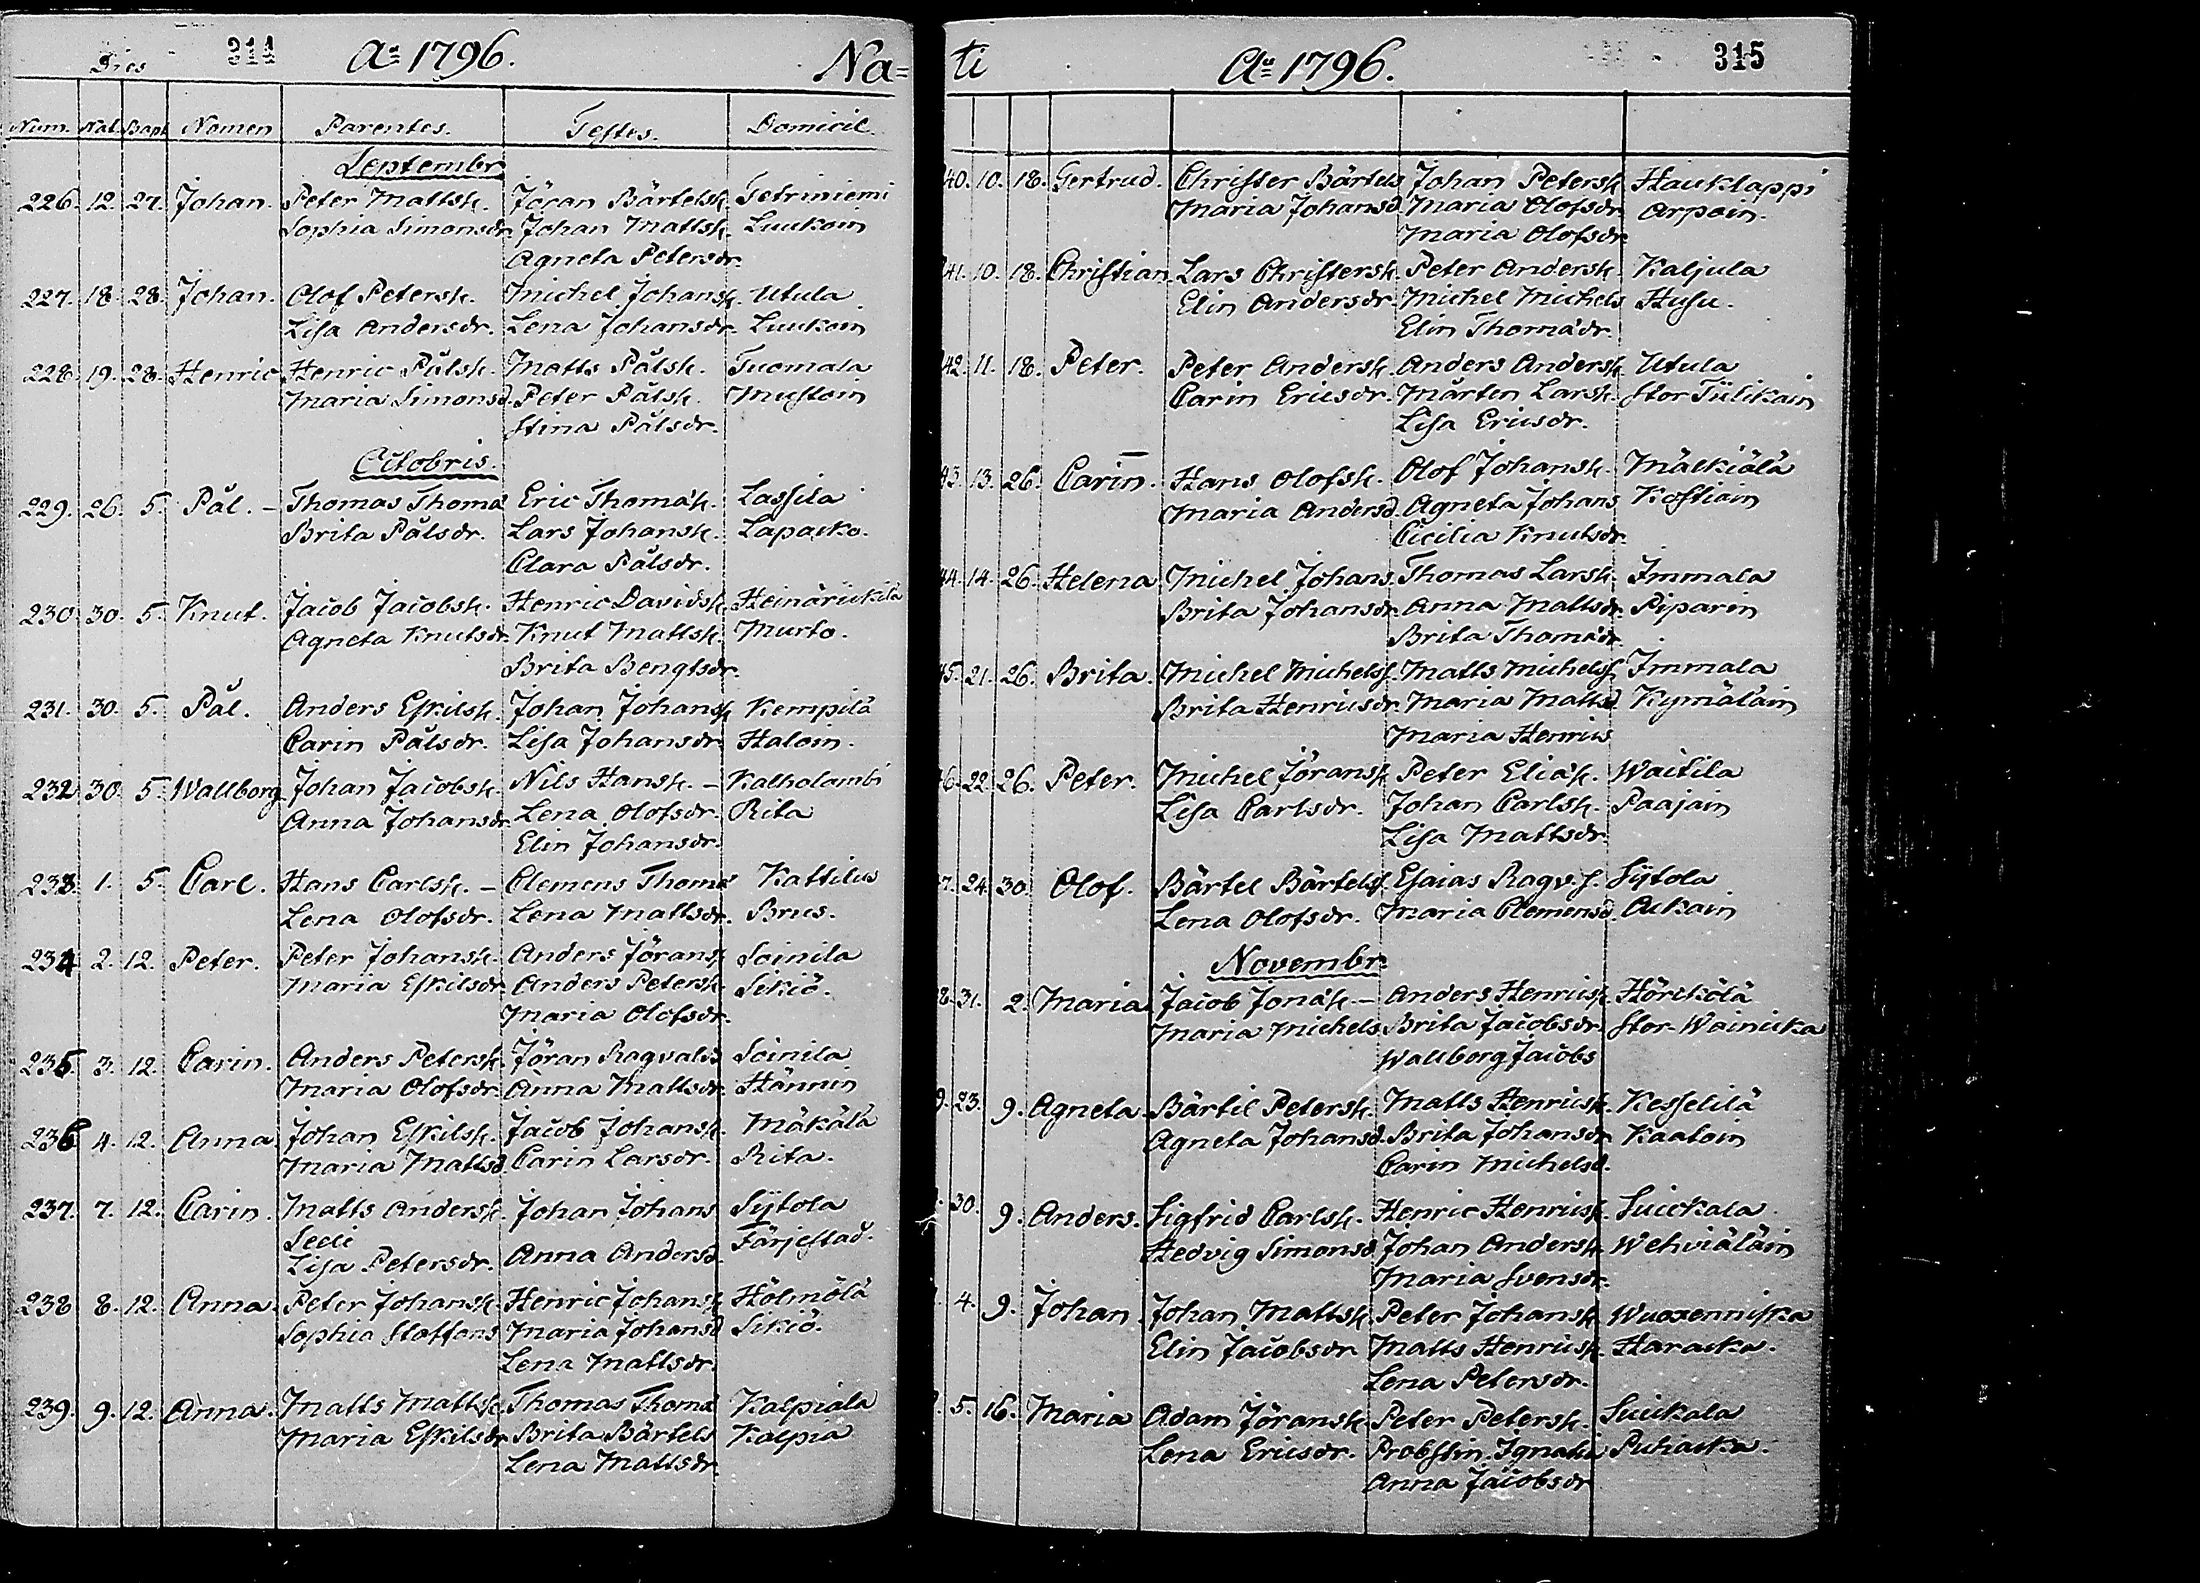 314 Aº 1796. Na=
Dies
Num. Nat. Bapt. Nomen Parentes. Testes. Domicil.
Septembr.
226. 12. 27. Johan. Peter Mattsk. Jöran Bärtelsk. Tetriniemi
Sophia Simonsdr. Johan Mattsk. Luukoin
Agneta Petersdr.
227. 18. 28. Johan. Olof Petersk. Michel Johansk. Utula
Lisa Andersdr. Lena Johansdr. Luukoin
228. 19. 28. Henric Henric Pålsk. Matts Pålsk. Tuomala
Maria Simonsd. Peter Pålsk. Mustoin
Stina Pålsdr.
Octobris.
229. 26. 5. Pål. – Thomas Thoma Eric Thomæk. Lassila
Brita Pålsdr. Lars Johansk. Lapacko.
Clara Pålsdr.
230. 30. 5. Knut. Jacob Jacobsk. Henric Davidsk. Heinärickilä
Agneta Knutsdr. Knut Mattsk. Murto.
Brita Bengtsdr.
231. 30. 5. Pål. Anders Eskilsk. Johan Johansk. Kempilä
Carin Pålsdr. Lisa Johansdr. Haloin.
232 30. 5. Wallborg Johan Jacobsk. Nils Hansk. – Kalholambi
Anna Johansdr. Lena Olofsdr. Rita
Elin Johansdr.
233. 1. 5. Carl. Hans Carlsk. – Clemens Thoma Kattilus
Lena Olofsdr. Lena Mattsdr. Brus.
234 2. 12. Peter. Peter Johansk. Anders Jöransk. Soinila
Maria Eskilsdr. Anders Petersk. Sikiö.
Maria Olofsdr.
235 3. 12. Carin. Anders Petersk. Jöran Ragvalds Soinila
Maria Olofsdr. Anna Mattsdr. Hännin
236 4. 12. Anna. Johan Eskilsk. Jacob Johansk. Mäkälä
Maria Mattsd. Carin Larsdr. Rita.
237. 7. 12. Carin. Matts Andersk. Johan Johans Sÿtola
Sedi Färjestad.
Lisa Petersdr. Anna Andersd.
238 8. 12. Anna. Peter Johansk. Henric Johansk. Hölmölä
Sophia Staffans Maria Johansd Sikiö.
Lena Mattsdr.
239. 9. 12. Anna. Matts Mattsk. Thomas Thoma Kalpiala
Maria Eskilsdr. Brita Bärtels Kalpia
Lena Mattsdr.
ti Aº 1796. 315
40. 10. 18. Gertrud. Christer Bärtels Johan Petersk. Hauklappi
Maria Johansd. Maria Olofsdr. Arpoin.
Maria Olofsdr.
41. 10. 18. Christian. Lars Christersk. Peter Andersk. Kaljula
Elin Andersdr. Michel Michels Husu.
Elin Thomædr.
42. 11. 18. Peter. Peter Andersk. Anders Andersk. Utula
Carin Ericsdr. Mårten Larsk. Stor Tülikain
Lisa Ericsdr.
43. 13. 26. Carin. Hans Olofsk. Olof Johansk. Mäckiölä
Maria Andersd. Agneta Johans Kostiain
Cicilia Knutsdr.
44. 14. 26. Helena Michel Johans. Thomas Larsk. Immala
Brita Johansdr. Anna Mattsdr. Piparin
Brita Thomædr.
45. 21. 26. Brita. Michel Michels. Matts Michels. Immala
Brita Henricsdr. Maria Mattsd Kymäläin
Maria Henrics
46. 22. 26. Peter. Michel Jöransk. Peter Eliæk. Waitila
Lisa Carlsdr. Johan Carlsk. Paajain
Lisa Mattsdr.
7. 24. 30. Olof. Bärtel Bärtels. Esaias Ragv.s. Sÿtola
Lena Olofsdr. Maria Clemensd. Ackain
Novembr.
8. 31. 2. Maria Jacob Jonæk. – Anders Henricsk. Hörckölä
Maria Michels Brita Jacobsdr. Stor Wainicka
Wallborg Jacobs
9. 23. 9. Agneta. Bärtil Petersk. Matts Henricsk. Kesselilä
Agneta Johansd. Brita Johansdr. Kaatoin
Carin Michelsd.
30. 9. Anders. Sigfrid Carlsk. Henric Henricsk. Suickala
Hedvig Simonsd Johan Andersk. Wehviäläin
Maria Svensdr.
4. 9. Johan. Johan Mattsk. Peter Johansk. Wuoxenniska
Elin Jacobsdr Matts Henricsk. Haracka.
Lena Petersdr.
5. 16. Maria Adam Jöransk. Peter Petersk. Suickala
Lena Ericsdr. Probstin Ignatii Puhacka.
Anna Jacobsdr